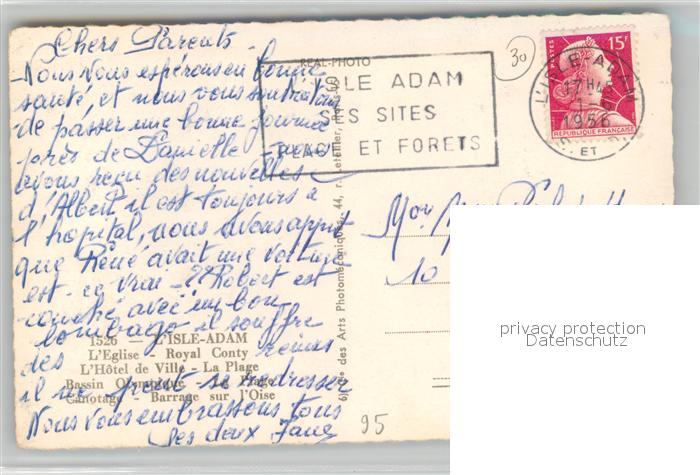 Chers Parents
Nous Nous espérons en bonne
santé, et nous vous souhaitons
de passer une bonne journée
près de Danielle, nous
avons reçu des nouvelles
d'Albert il est toujours à
l'hopital, nous avons appris
que René avait une voiture
est-ce vrai - ?? Robert est
couché avec un bon
lombago il souffre
des reins
il ne peut se redresser
Nous vous embrassons tous
Les deux
1526 — L'ISLE-ADAM
L'Eglise - Royal Conty
L'Hôtel de Ville - La Plage
Bassin Olympique - La Plage
Canotage - Barrage sur l'Oise
REAL-PHOTO
des Arts Photomécaniques, 44, r. Letellier, Paris
L'ISLE ADAM
SES SITES
PLAGE ET FORETS
30
POSTES
15F
REPUBLIQUE FRANÇAISE
L'ISLE-ADAM
17 H
1956
ET
Mon
10
95
privacy protection
Datenschutz